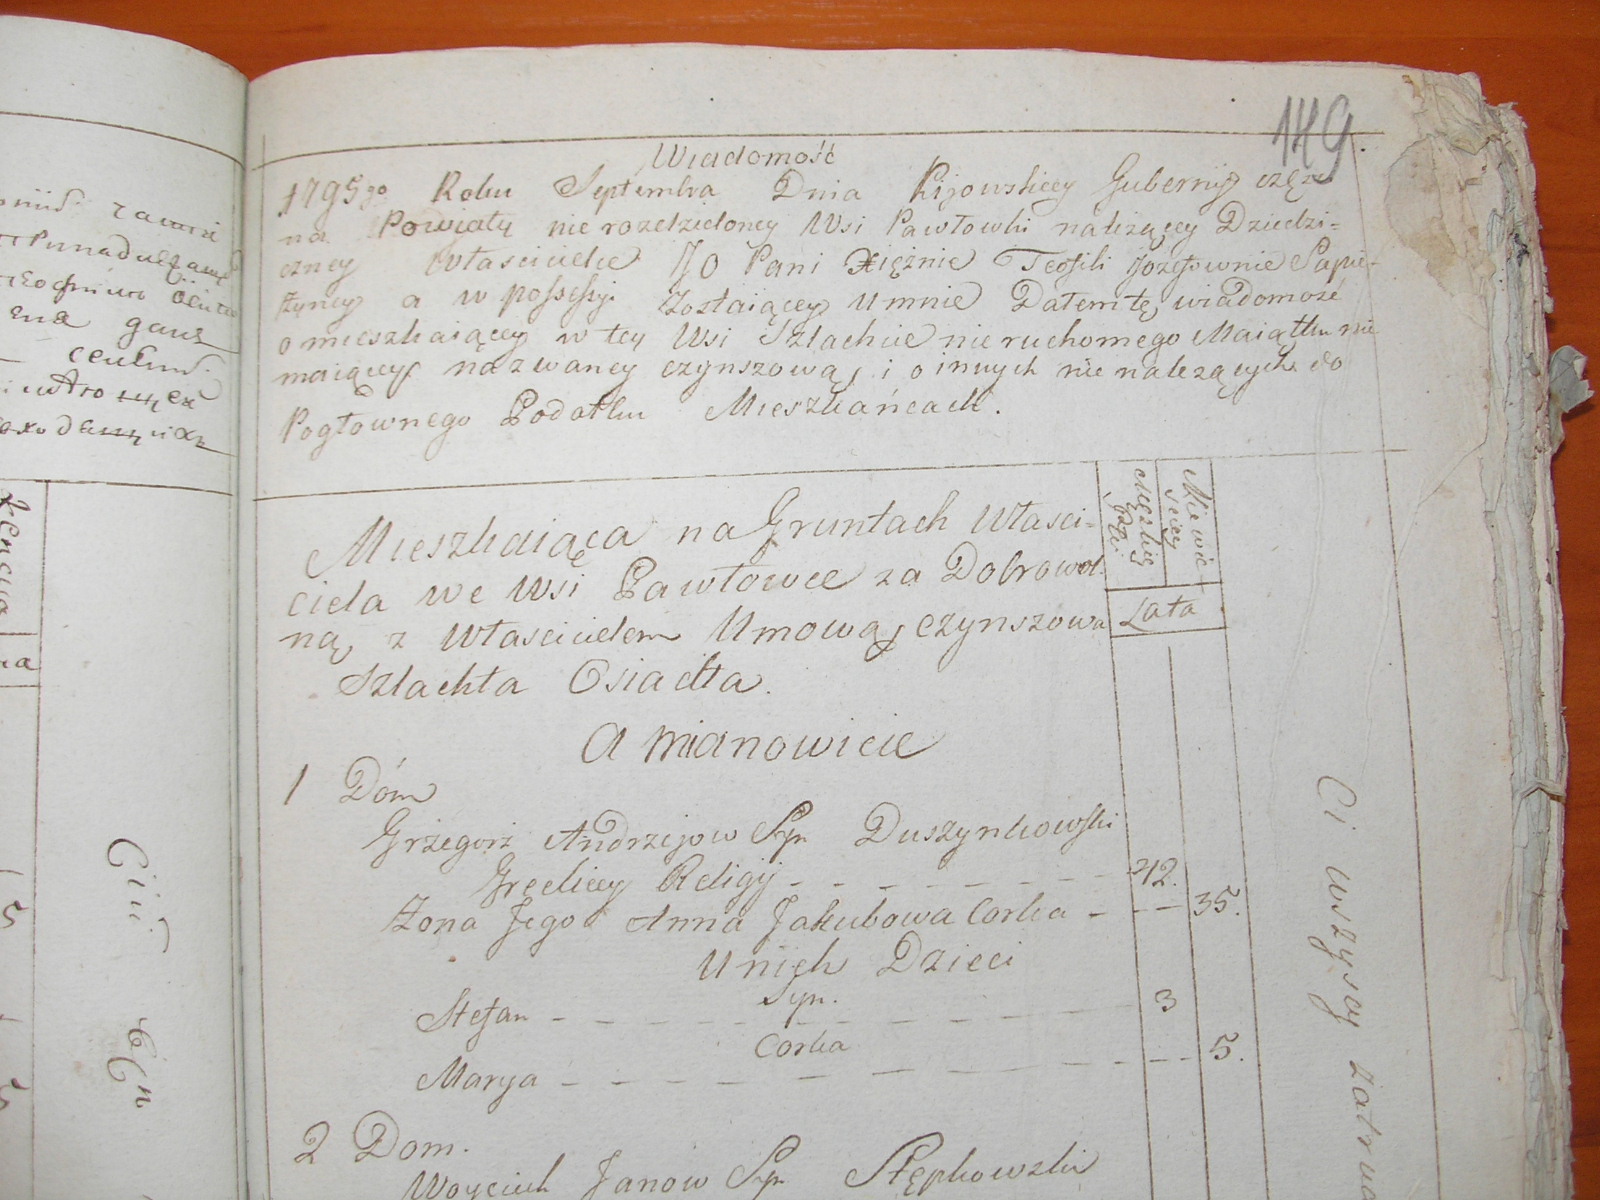 149
Wiadomość
1795go Roku Septembra Dnia Kijowskiey Gubernij
na Powiaty nie rozdzieloney Wsi Pawłowki należącey Dziedzi-
czney Właścicielce JO Pani Xiężnie Teofili Jozefownie Sapie-
żyney a w possessyi zostaiącey u mnie Datem tę wiadomość
o mieszkaiącey w tey Wsi Szlachcie nieruchomego Maiątku nie
maiącey nazwaney czynszową, i o innych nie należących do
Pogłownego Podatku Mieszkańcach.
Mieszkaiąca na Gruntach Właści-
ciela we Wsi Pawłowce za Dobrowol-
ną z Właścicielem Umową, czynszowa
Szlachta Osiadła.
Lata
A mianowicie
1 Dóm
Grzegorz Andrzejow Syn Duszynkowski
Greckiey Religij - - - - - - - - 42.
Żona Jego Anna Jakubowa Corka - - - 35.
U nich Dzieci
Syn.
Stefan - - - - - - - - - - 3
Corka
Marya - - - - - - - - - - - - 5.
2 Dom.
Woyciech Janow Syn Stępkowski
Ci wszyscy